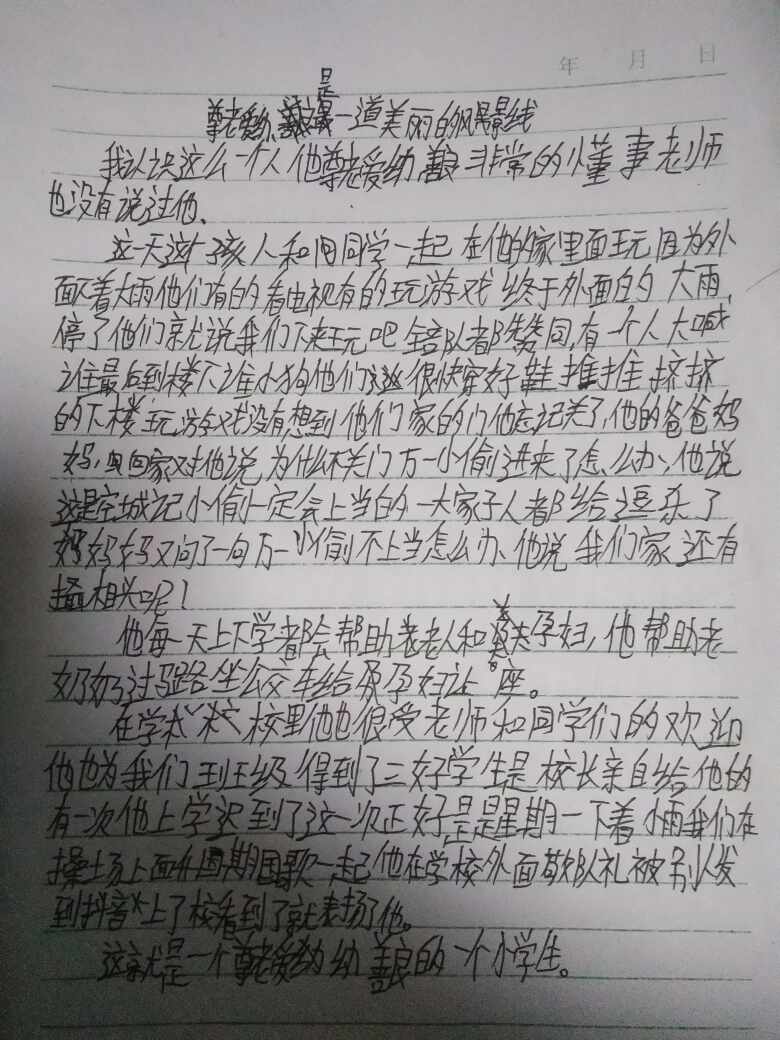 年 月 日
是
尊老爱幼 一道美丽的风景线
我认识这么一个人他尊老爱幼善良非常的懂事老师
也没有说过他、
这一天这个孩人和同学一起 在他的家里面玩因为外
面下着大雨他们有的看电视有的玩游戏 终于外面的 大雨,
停了他们就说我们下来玩吧 全部人都赞同,有一个人大喊
谁最后到楼下谁小狗他们 很快穿好鞋 推推挤挤
的下楼 玩游戏没有想到他们家的门他忘记关了,他的爸爸妈
妈, 回家对他说 为什么不关门万一小偷进来了怎么办、他说
这是空城记小偷一定会上当的 一大家子人都给逗乐了
妈妈又问了一句万一小偷不上当怎么办、他说 我们家 还有
摄相头呢!
他每一天上下学都会帮助老人和孕妇, 他帮助老
奶奶过马路坐公交车给孕妇让座。
在学校里他也很受老师和同学们的欢迎
他也为我们班级得到了三好学生是 校长亲自给他的
有一次他上学迟到了这一次正好是星期一下着小雨我们在
操场上面升国旗国歌一起他在学校外面敬队礼被别人发
到抖音上了校看到了就表扬了他。
这就是一个尊老爱幼 善良的 一个小学生。